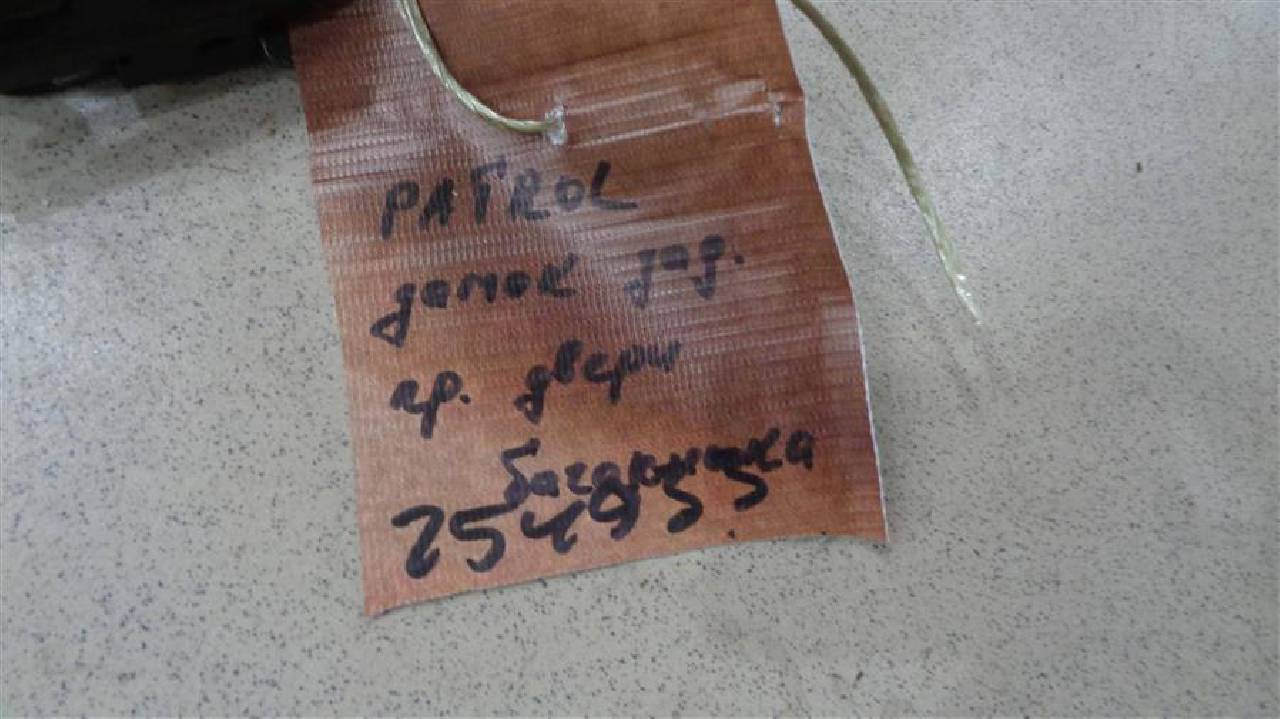 PATROL
замок зад.
пр. двери
багажника
254953